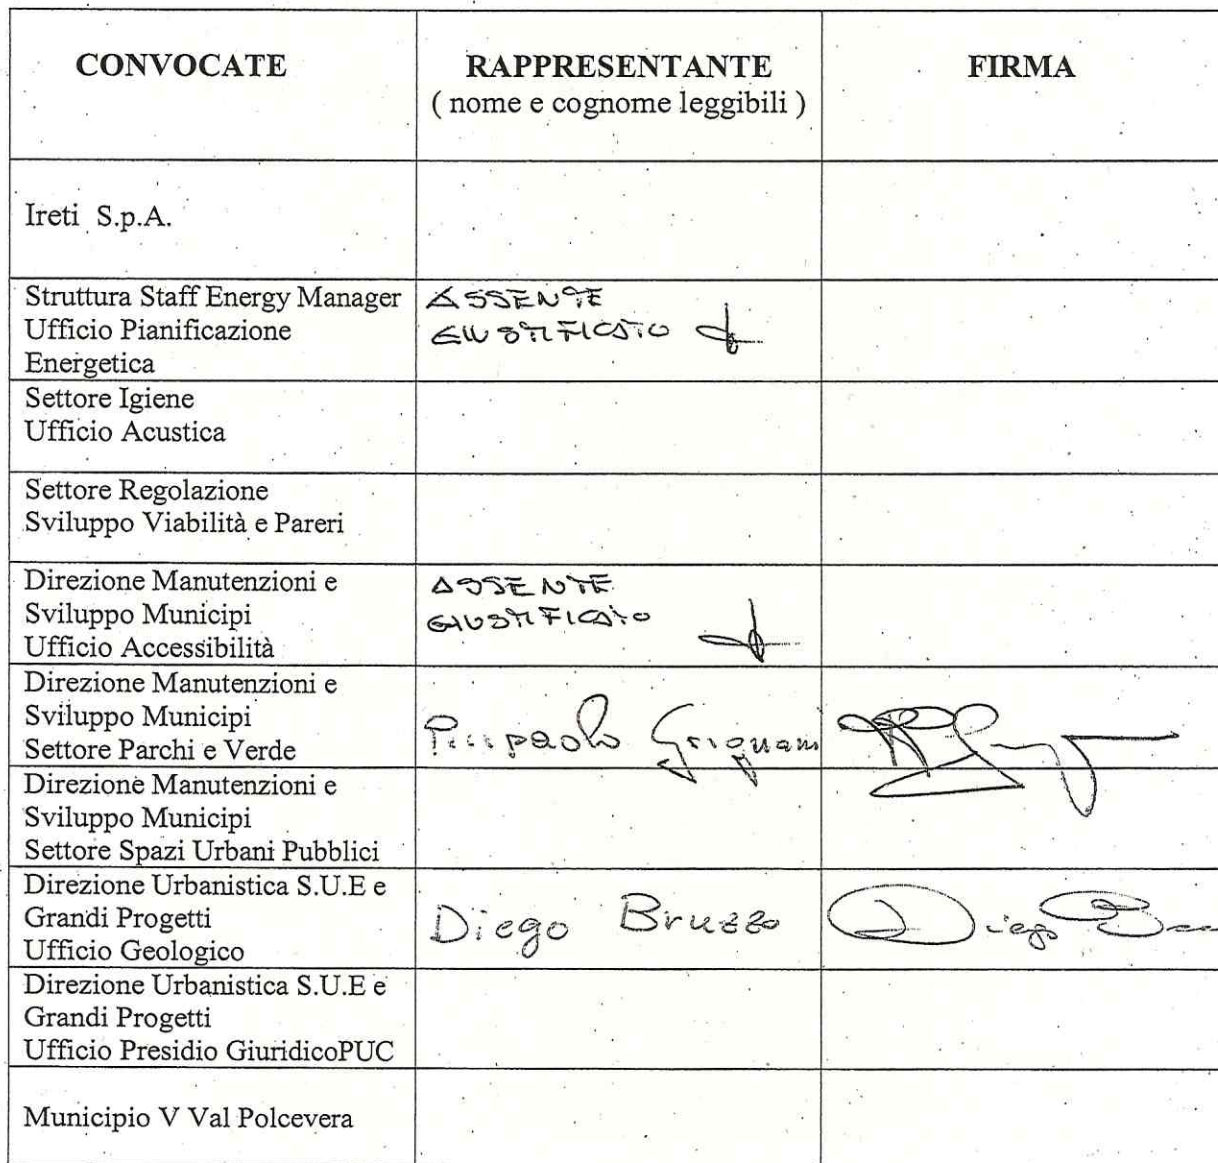 CONVOCATE RAPPRESENTANTE FIRMA
( nome e cognome leggibili )
Ireti S.p.A.
Struttura Staff Energy Manager ASSENTE
Ufficio Pianificazione GIUSTIFICATO
Energetica
Settore Igiene
Ufficio Acustica
Settore Regolazione
Sviluppo Viabilità e Pareri
Direzione Manutenzioni e ASSENTE
Sviluppo Municipi GIUSTIFICATO
Ufficio Accessibilità
Direzione Manutenzioni e
Sviluppo Municipi
Settore Parchi e Verde Pierpaolo Grignani
Direzione Manutenzioni e
Sviluppo Municipi
Settore Spazi Urbani Pubblici
Direzione Urbanistica S.U.E e
Grandi Progetti Diego Bruzzo Diego
Ufficio Geologico
Direzione Urbanistica S.U.E e
Grandi Progetti
Ufficio Presidio GiuridicoPUC
Municipio V Val Polcevera